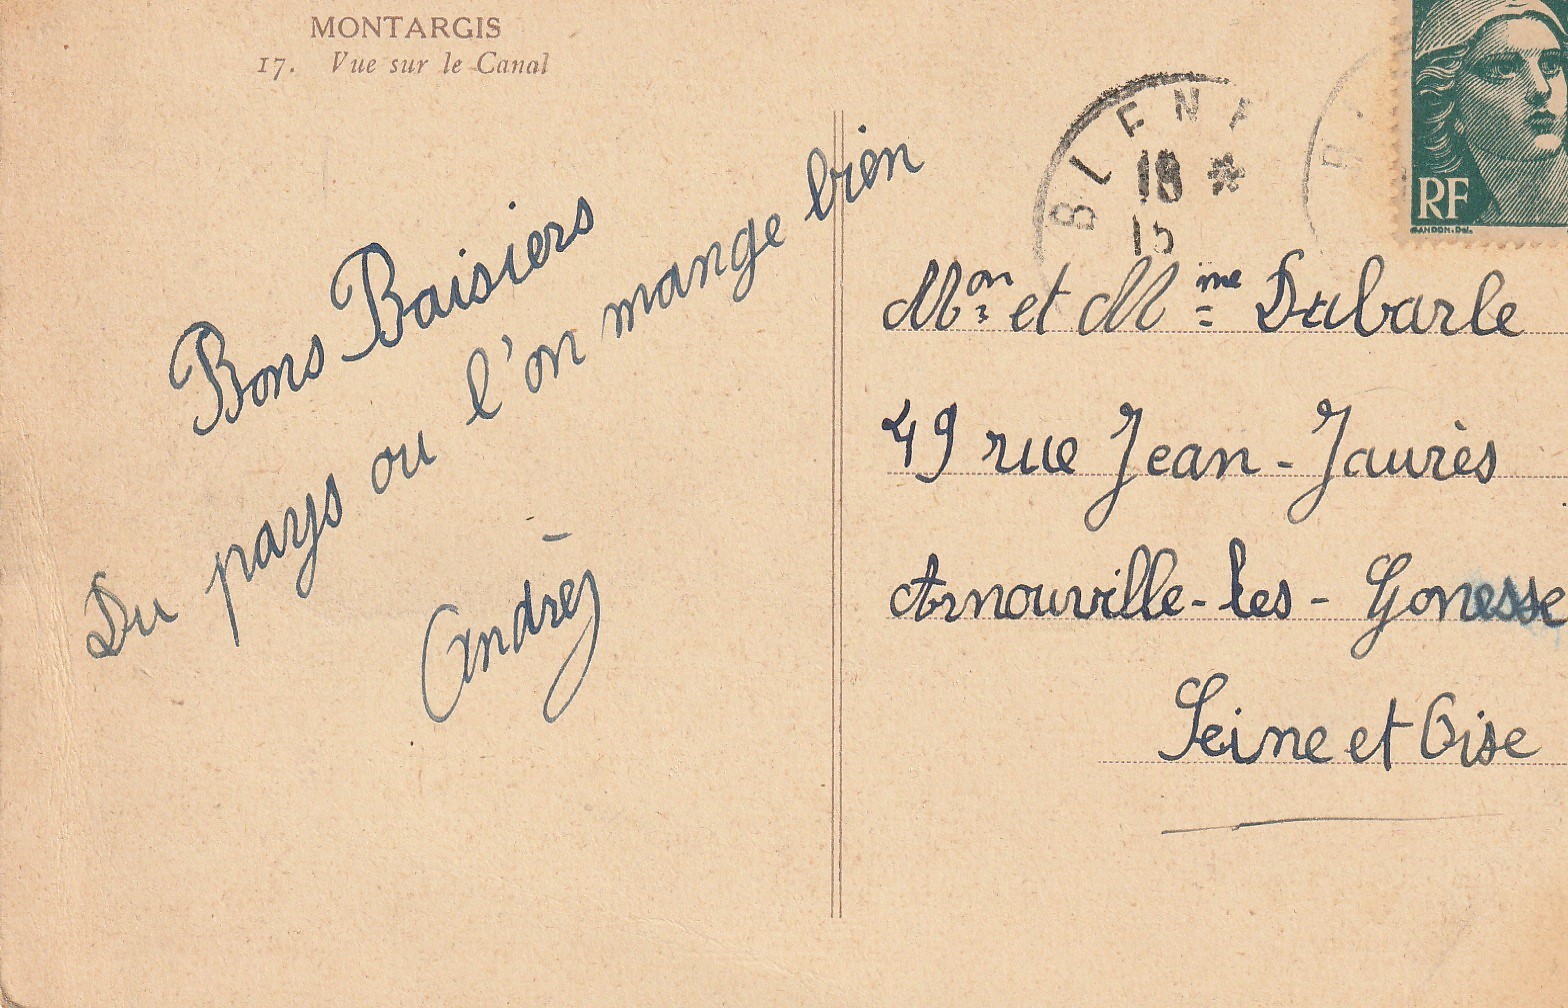 MONTARGIS
17. Vue sur le Canal
Bons Baisiers
Du pays ou l'on mange bien
André
BLEN
18 *
15
RF
GANDON.Del.
Mon et Mme Dubarle
49 rue Jean-Jaurès
Arnouville-les-Gonesse
Seine et Oise